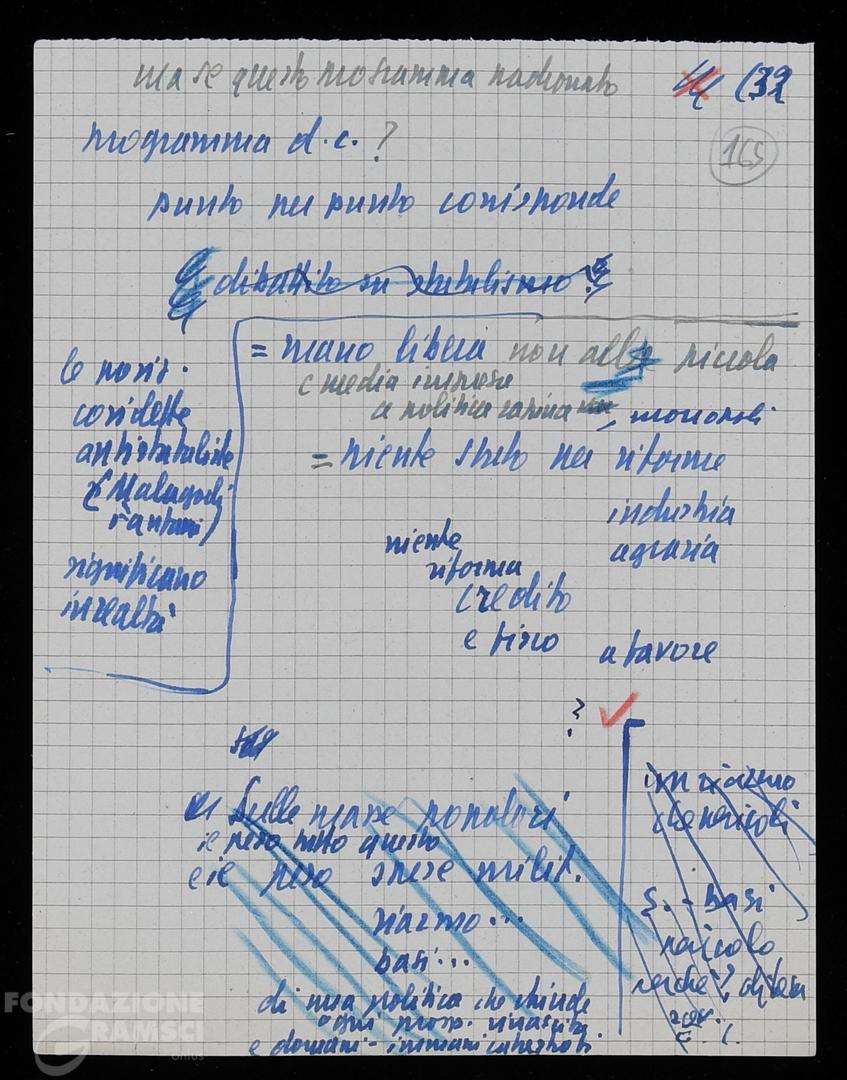 ma se questo programma nazionale
(39
programma d.c. ?
165
punto per punto corrisponde
dibattito su statalismo ?
le posiz.
cosidette
antistataliste
(Malagodi
Fanfani)
significano
in realtà
= mano libera non alla piccola
e media impresa
a politica rapina, monopoli
= niente stato per riforme
industria
agraria
niente
riforma
credito
e fisco
a favore
?
Sulle masse popolari
il peso tutto questo
e il peso spese milit.
riarmo...
basi...
di una politica che chiude
ogni prosp. rinascita
e domani - immani catastrofi
un riarmo
che pericoli
S. - basi
pericolo
perché ? difesa
FONDAZIONE
GRAMSCI
onlus